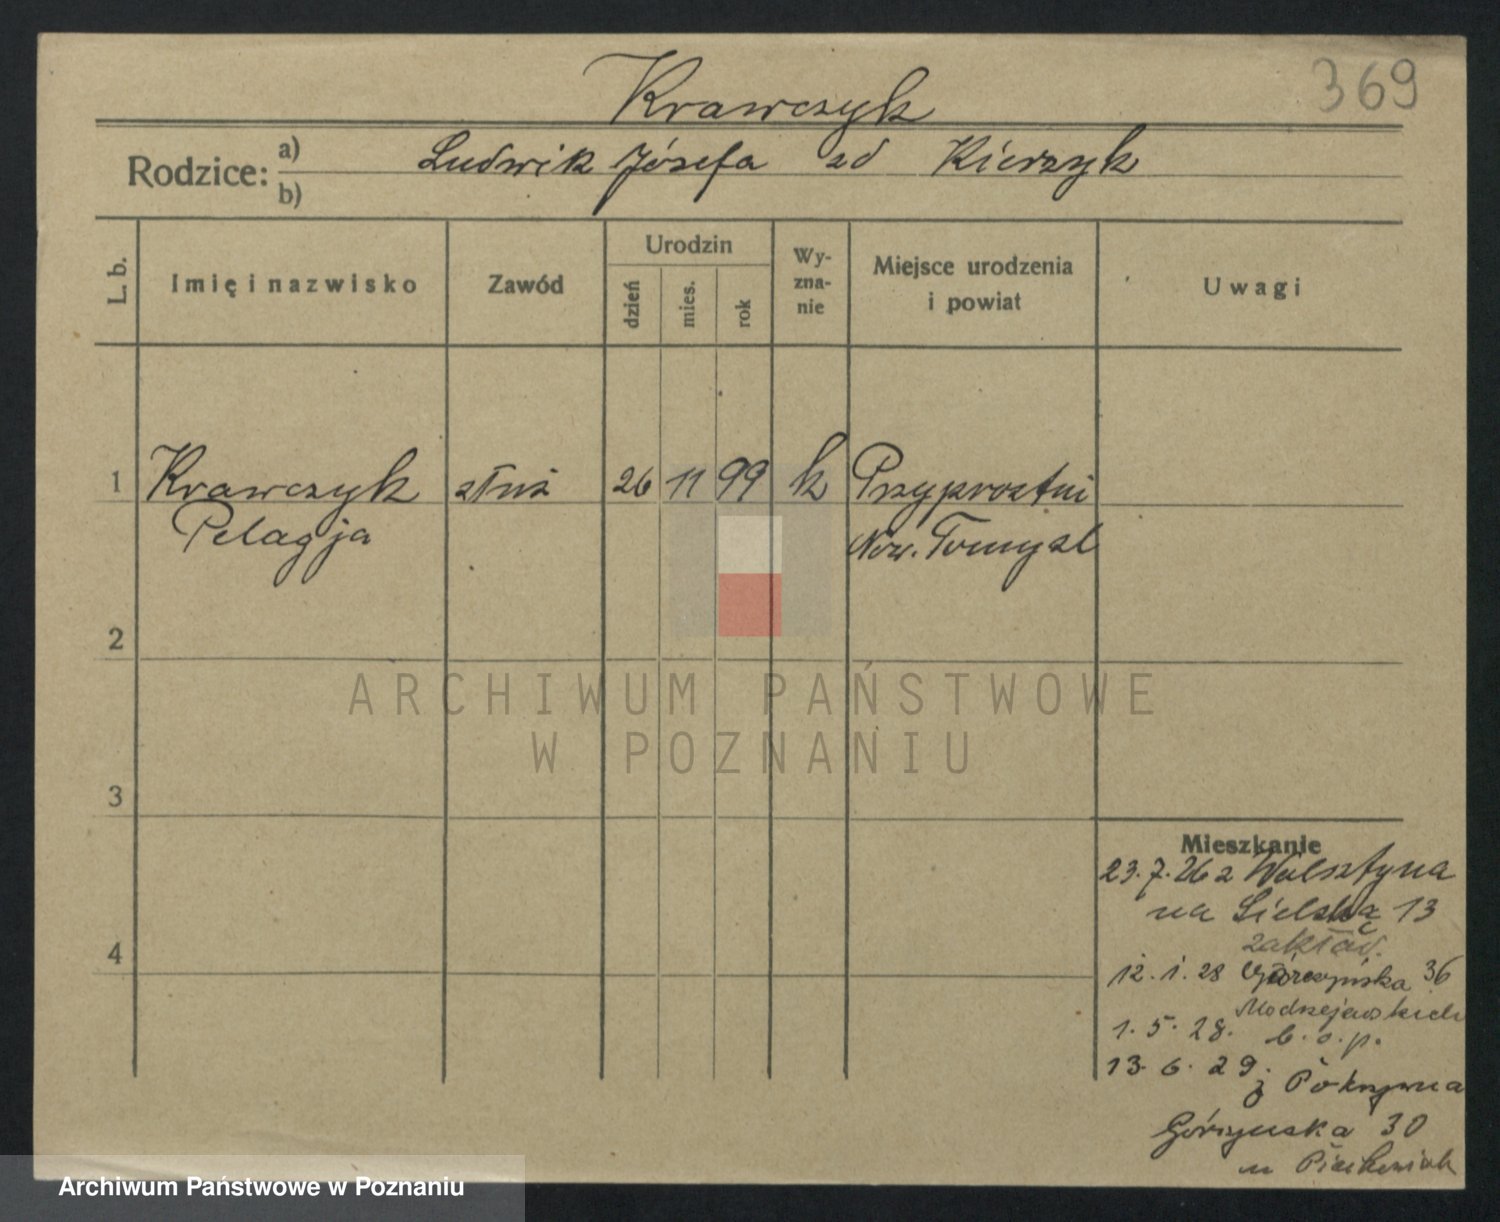 369
Krawczyk
Rodzice: a) Ludwik Józefa zd Kierzyk
b)
L. b. Imię i nazwisko Zawód Urodzin dzień mies. rok Wy-zna-nie Miejsce urodzenia i powiat Uwagi
1 Krawczyk służ 26 11 99 k Przyprostni
Pelagja Now. Tomysl
2
ARCHIWUM PAŃSTWOWE
W POZNANIU
3
Mieszkanie
23.7.26 z Wolsztyna
na Sielska 13
zakład.
4
12.1.28 Górczyńska 36
Modrzejewskich
1.5.28. b.o.p.
13.6.29. z Pokrzywna
Górczynska 30
u
Archiwum Państwowe w Poznaniu